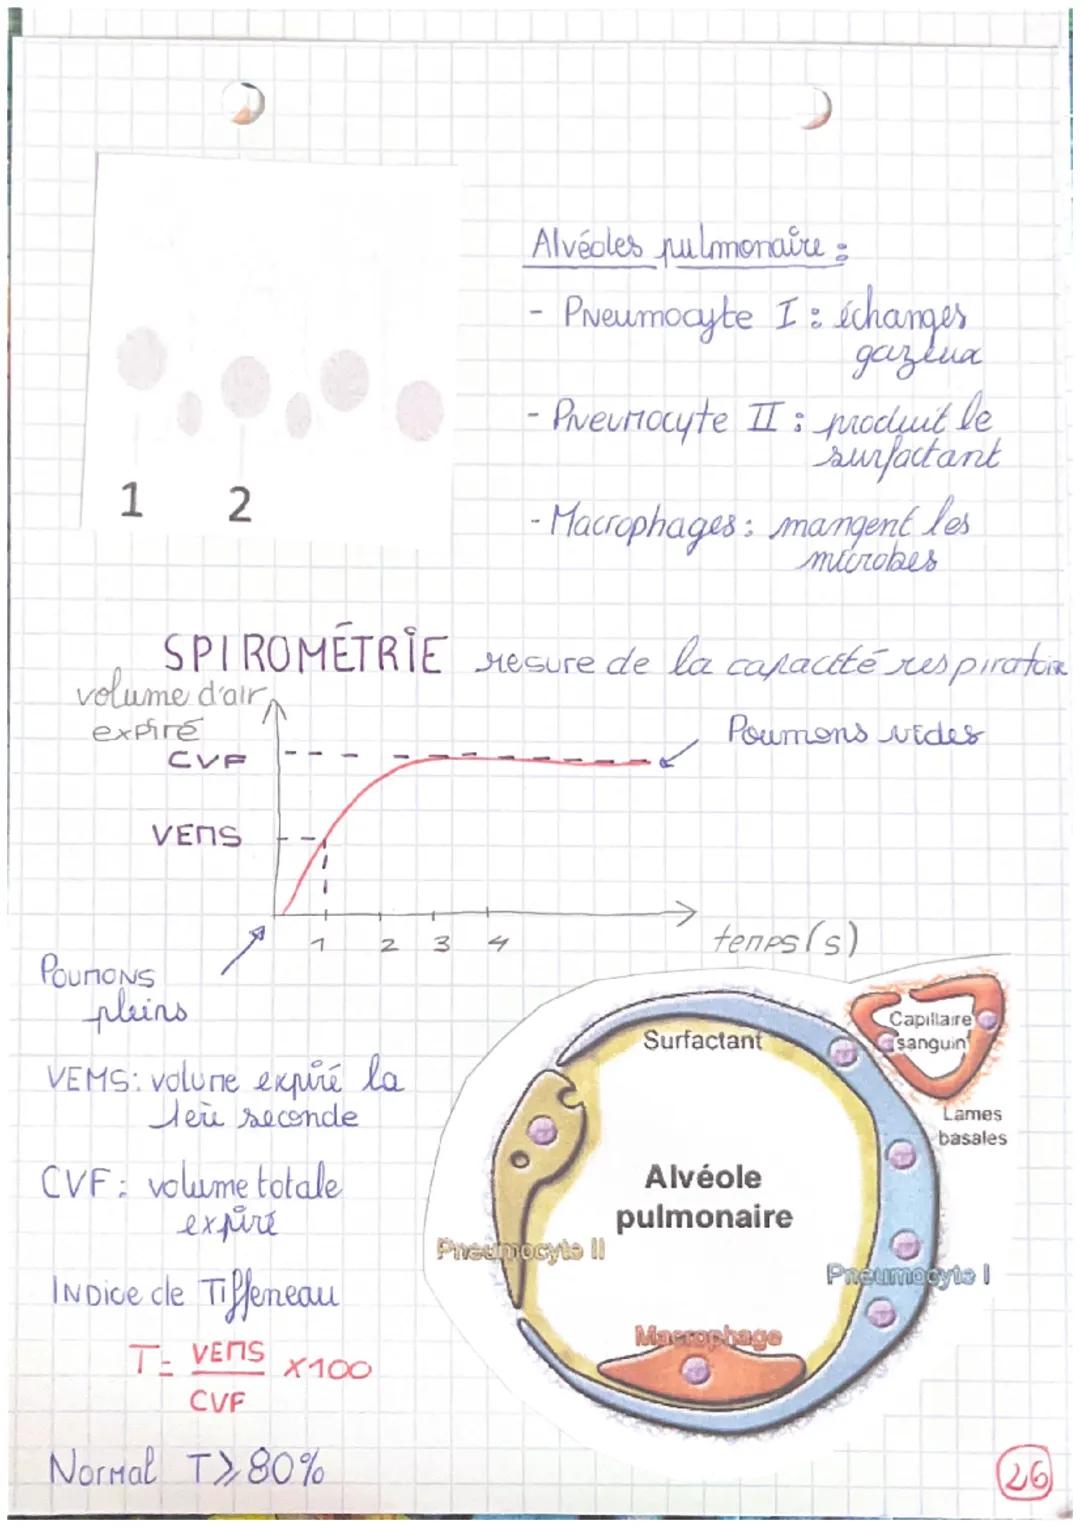 Alvéoles pulmonaire :
- Pneumocyte I : échanges
gazeux
- Pneumocyte II : produit le
surfactant
- Macrophages : mangent les
microbes
1 2
SPIROMÉTRIE mesure de la capacité respiratoire
volume d'air
expiré
CVF
Poumons vides
VEMS
1 2 3 4
temps (s)
Poumons
pleins
VEMS : volume expiré la
1ère seconde
CVF : volume totale
expiré
Indice de Tiffeneau
T = VEMS x 100
CVF
Normal T ⩾ 80%
Capillaire
sanguin
Surfactant
Lames
basales
Alvéole
pulmonaire
Pneumocyte II
Pneumocyte I
Macrophage
26